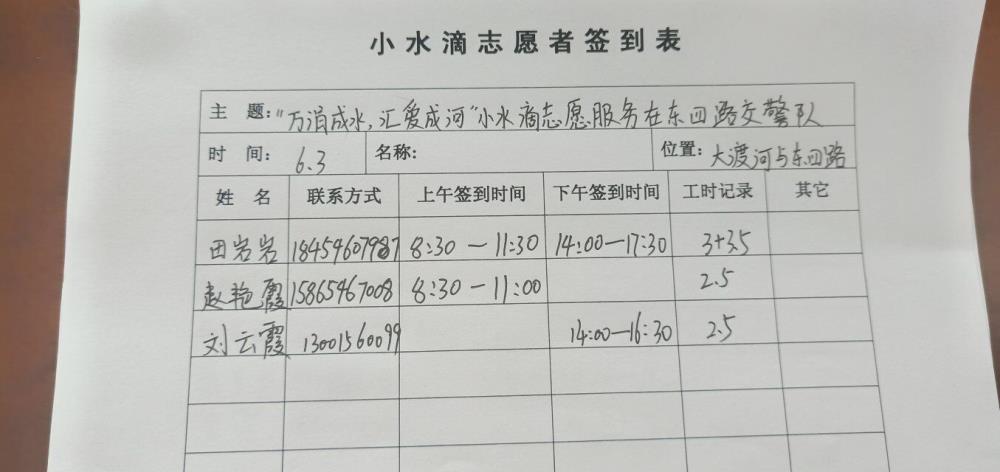 小水滴志愿者签到表
主 题:"万涓成水,汇爱成河"小水滴志愿服务在东四路交警队
时 间: 6.3 名称: 位置: 大渡河与东四路
姓 名 联系方式 上午签到时间 下午签到时间 工时记录 其它
田岩岩 18454607987 8:30—11:30 14:00—17:30 3+3.5
赵艳霞 15865467008 8:30—11:00 2.5
刘云霞 13001560099 14:00—16:30 2.5